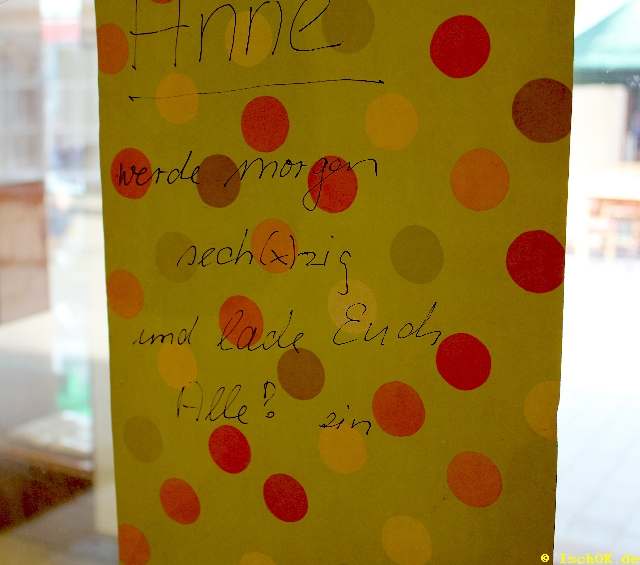 Anne
werde morgen
sech(x)zig
und lade Euch
Alle? ein
© IschOK.de